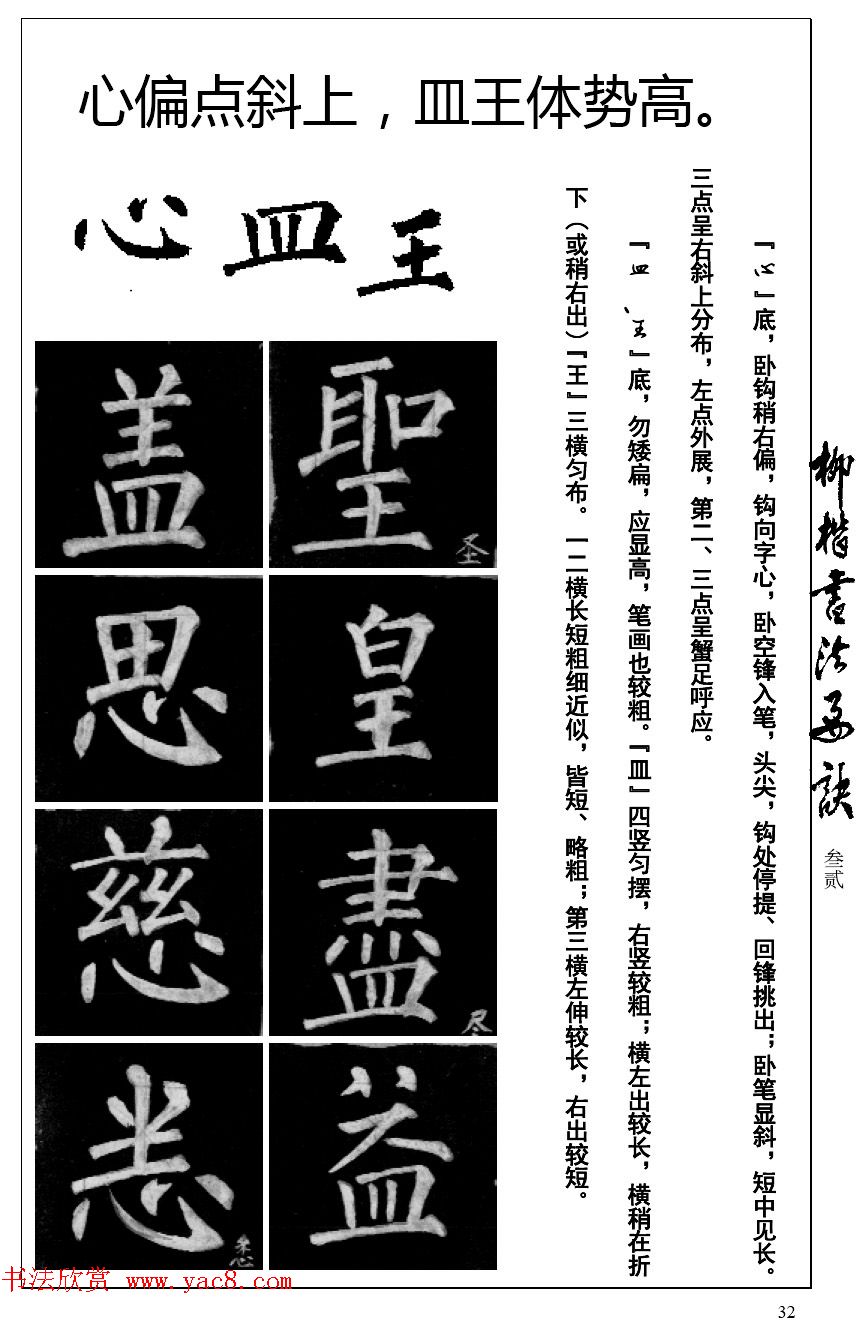 心偏点斜上，皿王体势高。
心 皿 王
『心』底，卧钩稍右偏，钩向字心，卧空锋入笔，头尖，钩处停提、回锋挑出；卧笔显斜，短中见长。
三点呈右斜上分布，左点外展，第二、三点呈蟹足呼应。
『皿、王』底，勿矮扁，应显高，笔画也较粗。『皿』四竖匀摆，右竖较粗；横左出较长，横稍在折
下（或稍右出）『王』三横匀布。一二横长短粗细近似，皆短、略粗；第三横左伸较长，右出较短。
盖 聖 圣
思 皇
慈 盡 尽
悉 益
悉
柳楷书法要诀
叁贰
书法欣赏 www.yac8.com
32